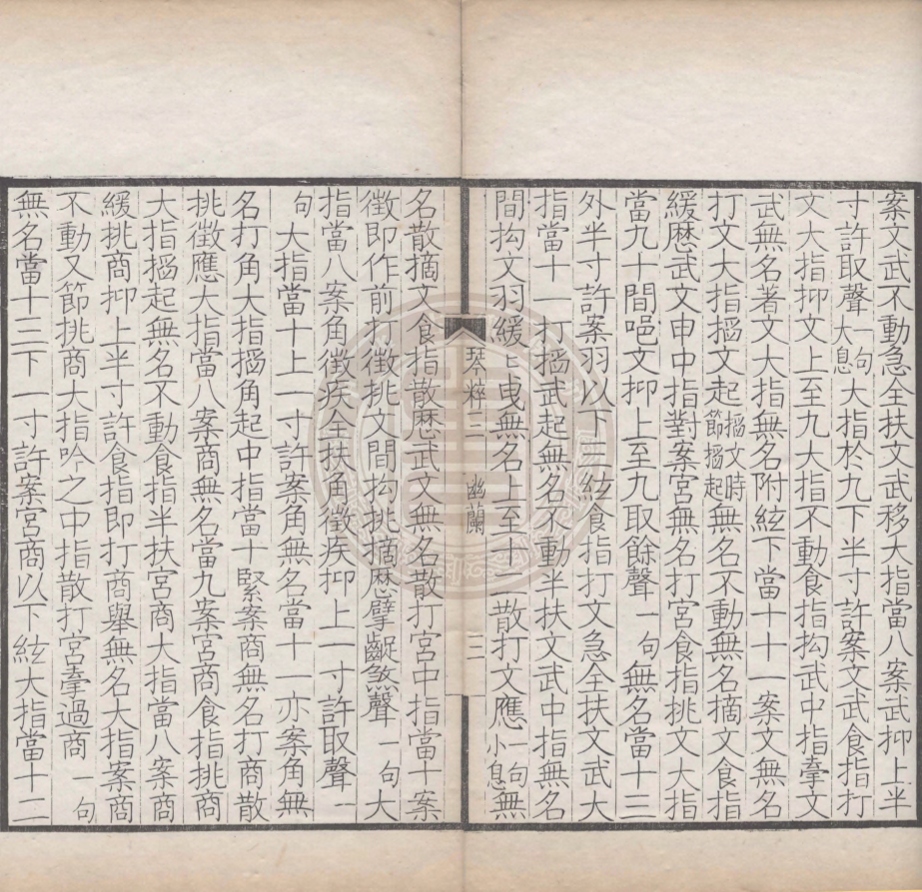 案文武不動急全扶文武移大指當八案武抑上半
寸許取聲一句大息大指於九下半寸許案文武食指打
文大指抑文上至九大指不動食指抅武中指㩓文
武無名著文大指無名附絃下當十十一案文無名
打文大指搯文起搯文時節搯起無名不動無名摘文食指
緩歴武文申中指對案宮無名打宮食指挑文大指
當九十間吧文抑上至九取餘聲一句無名當十三
外半寸許案羽以下三絃食指打文急全扶文武大
指當十一打搯武起無名不動半扶文武中指無名
間抅文羽緩ヒ曵無名上至十二散打文應一句小息無
琴粹二 幽蘭 三
名散摘文食指散歴武文無名散打宮中指當十案
徵即作前打徵挑文間抅挑摘歴擘齪煞聲一句大
指當八案角徵疾全扶角徵疾抑上一寸許取聲一
句大指當十上一寸許案角無名當十一亦案角無
名打角大指搯角起中指當十緊案商無名打商散
挑徵應大指當八案商無名當九案宮商食指挑商
大指搯起無名不動食指半扶宮商大指當八案商
緩挑商抑上半寸許食指即打商舉無名大指案商
不動又節挑商大指吟之中指散打宮㩓過商一句
無名當十三下一寸許案宮商以下絃大指當十二